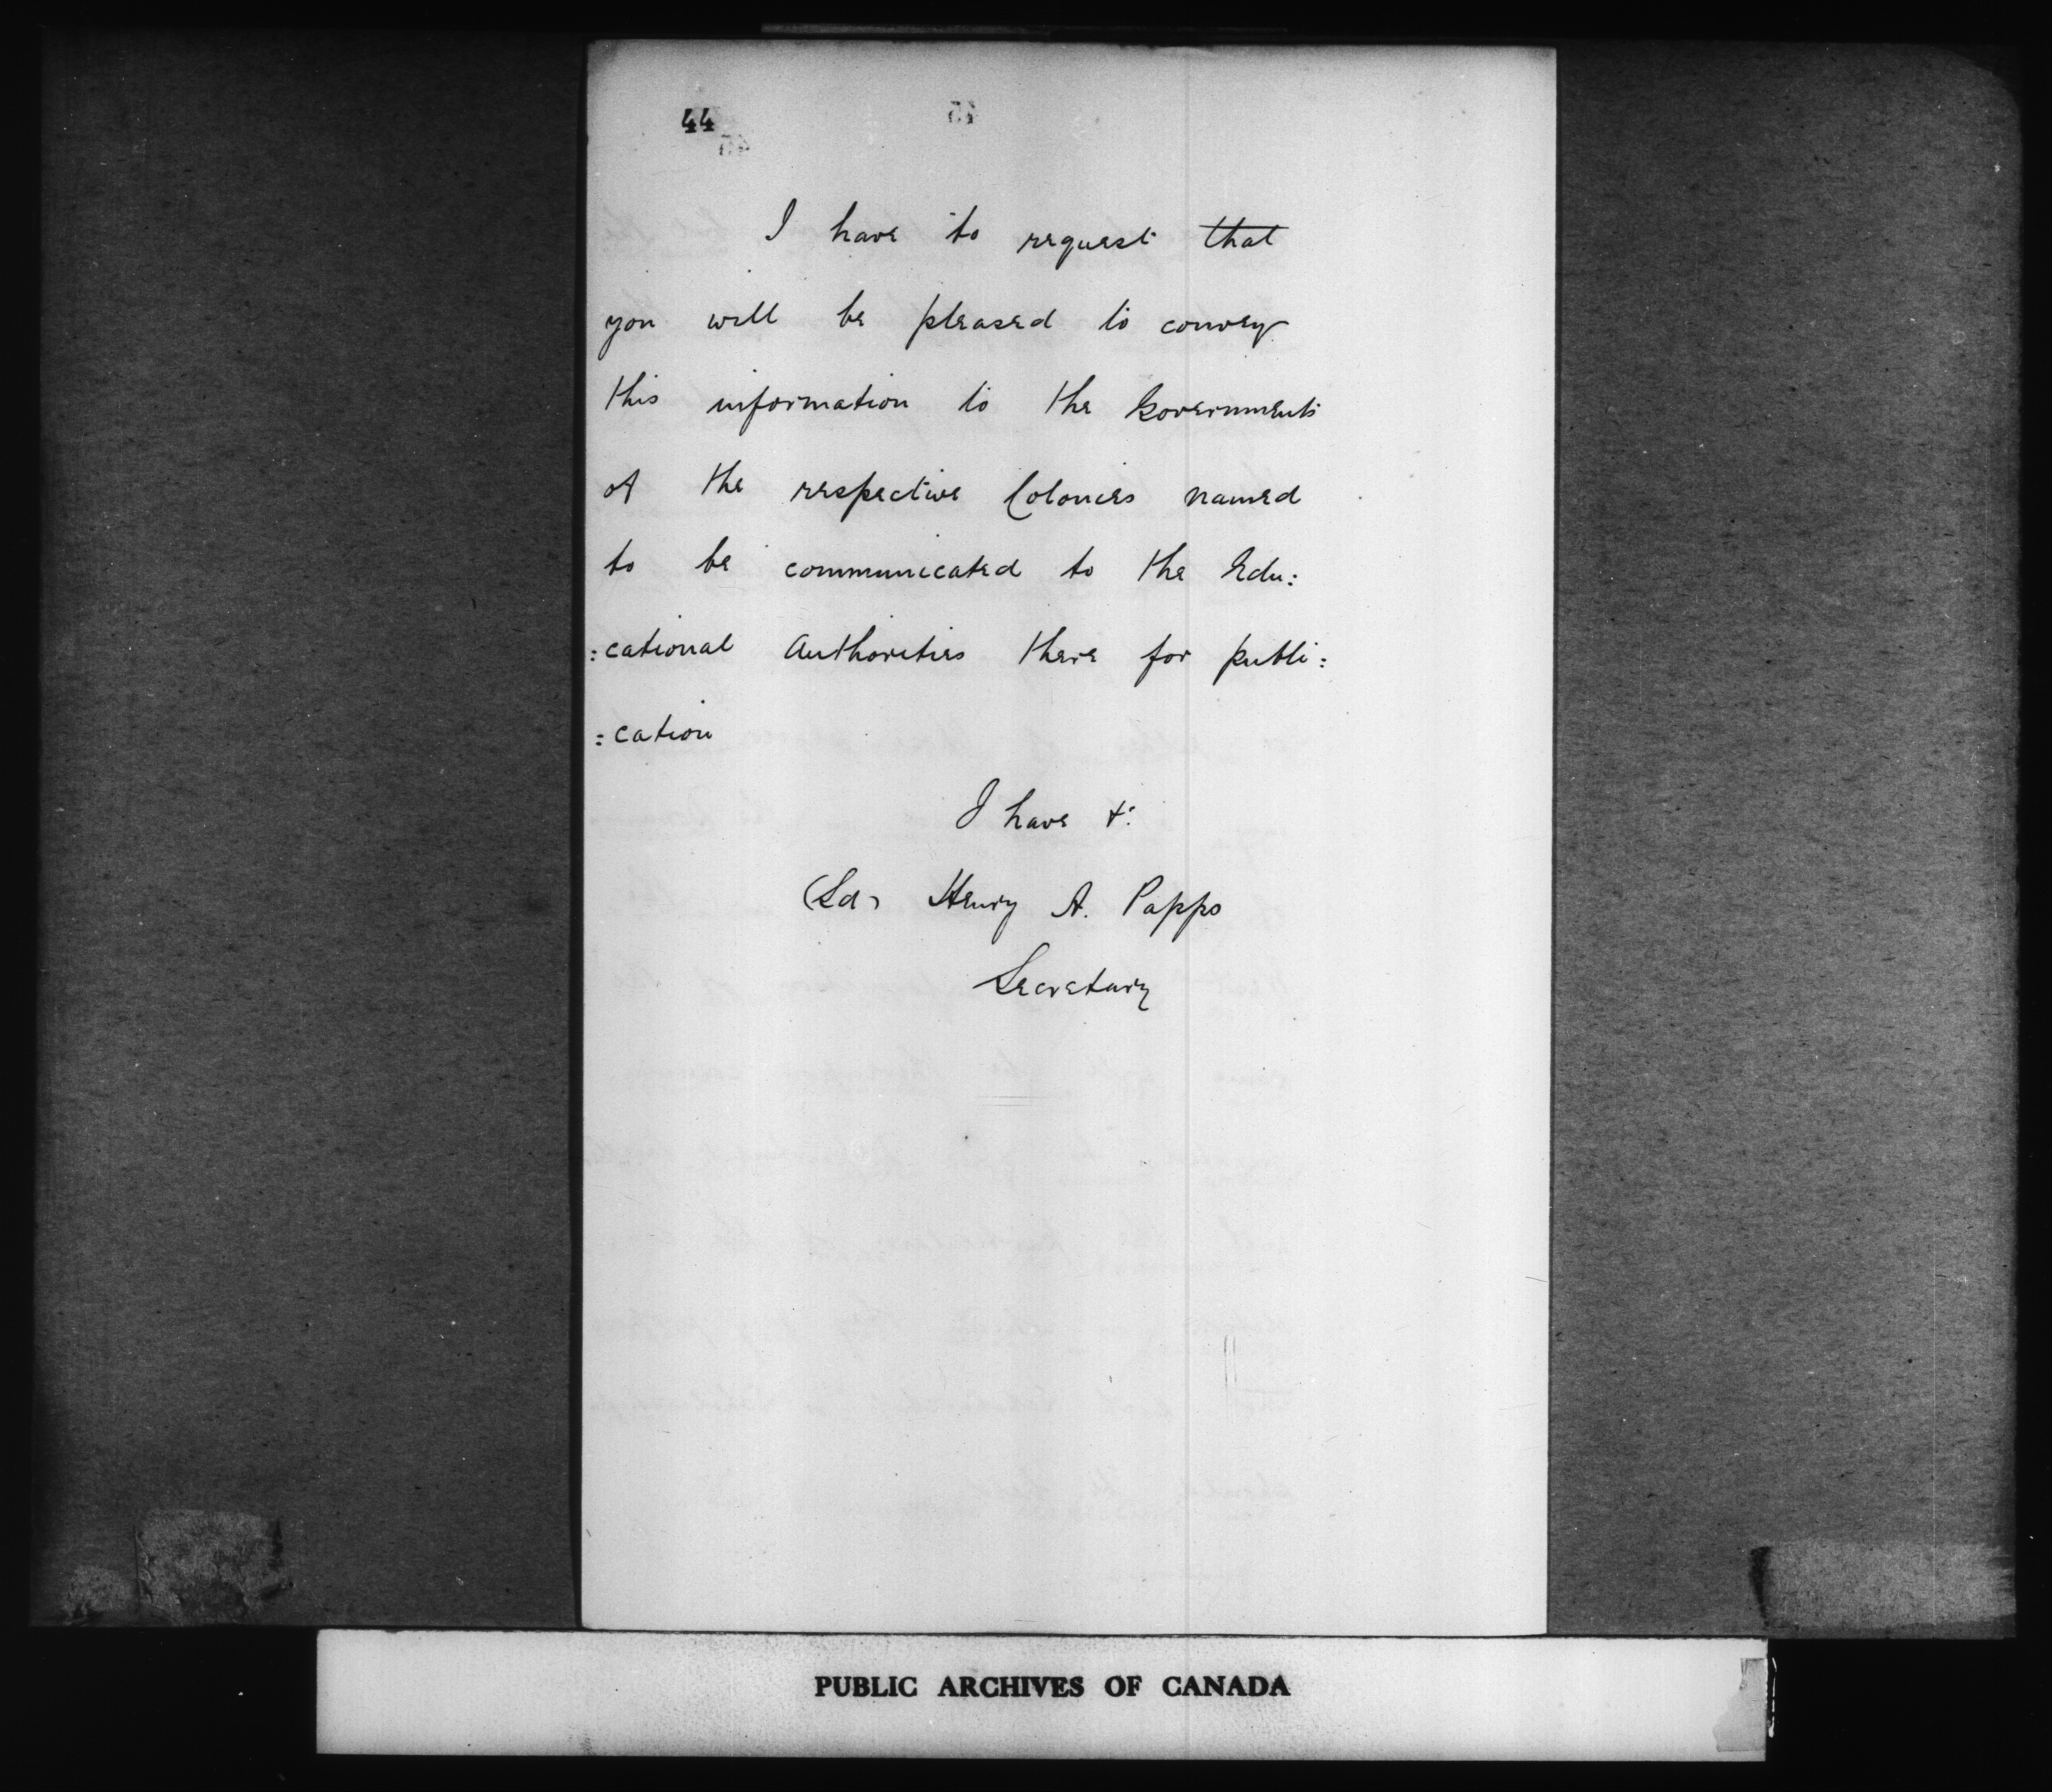 44
45
I have to request that
you will be pleased to convey
this information to the Governments
of the respective Colonies named
to be communicated to the Edu:
:cational Authorities there for publi:
:cation
I have &:
(Sd) Henry A. Papps
Secretary
PUBLIC ARCHIVES OF CANADA